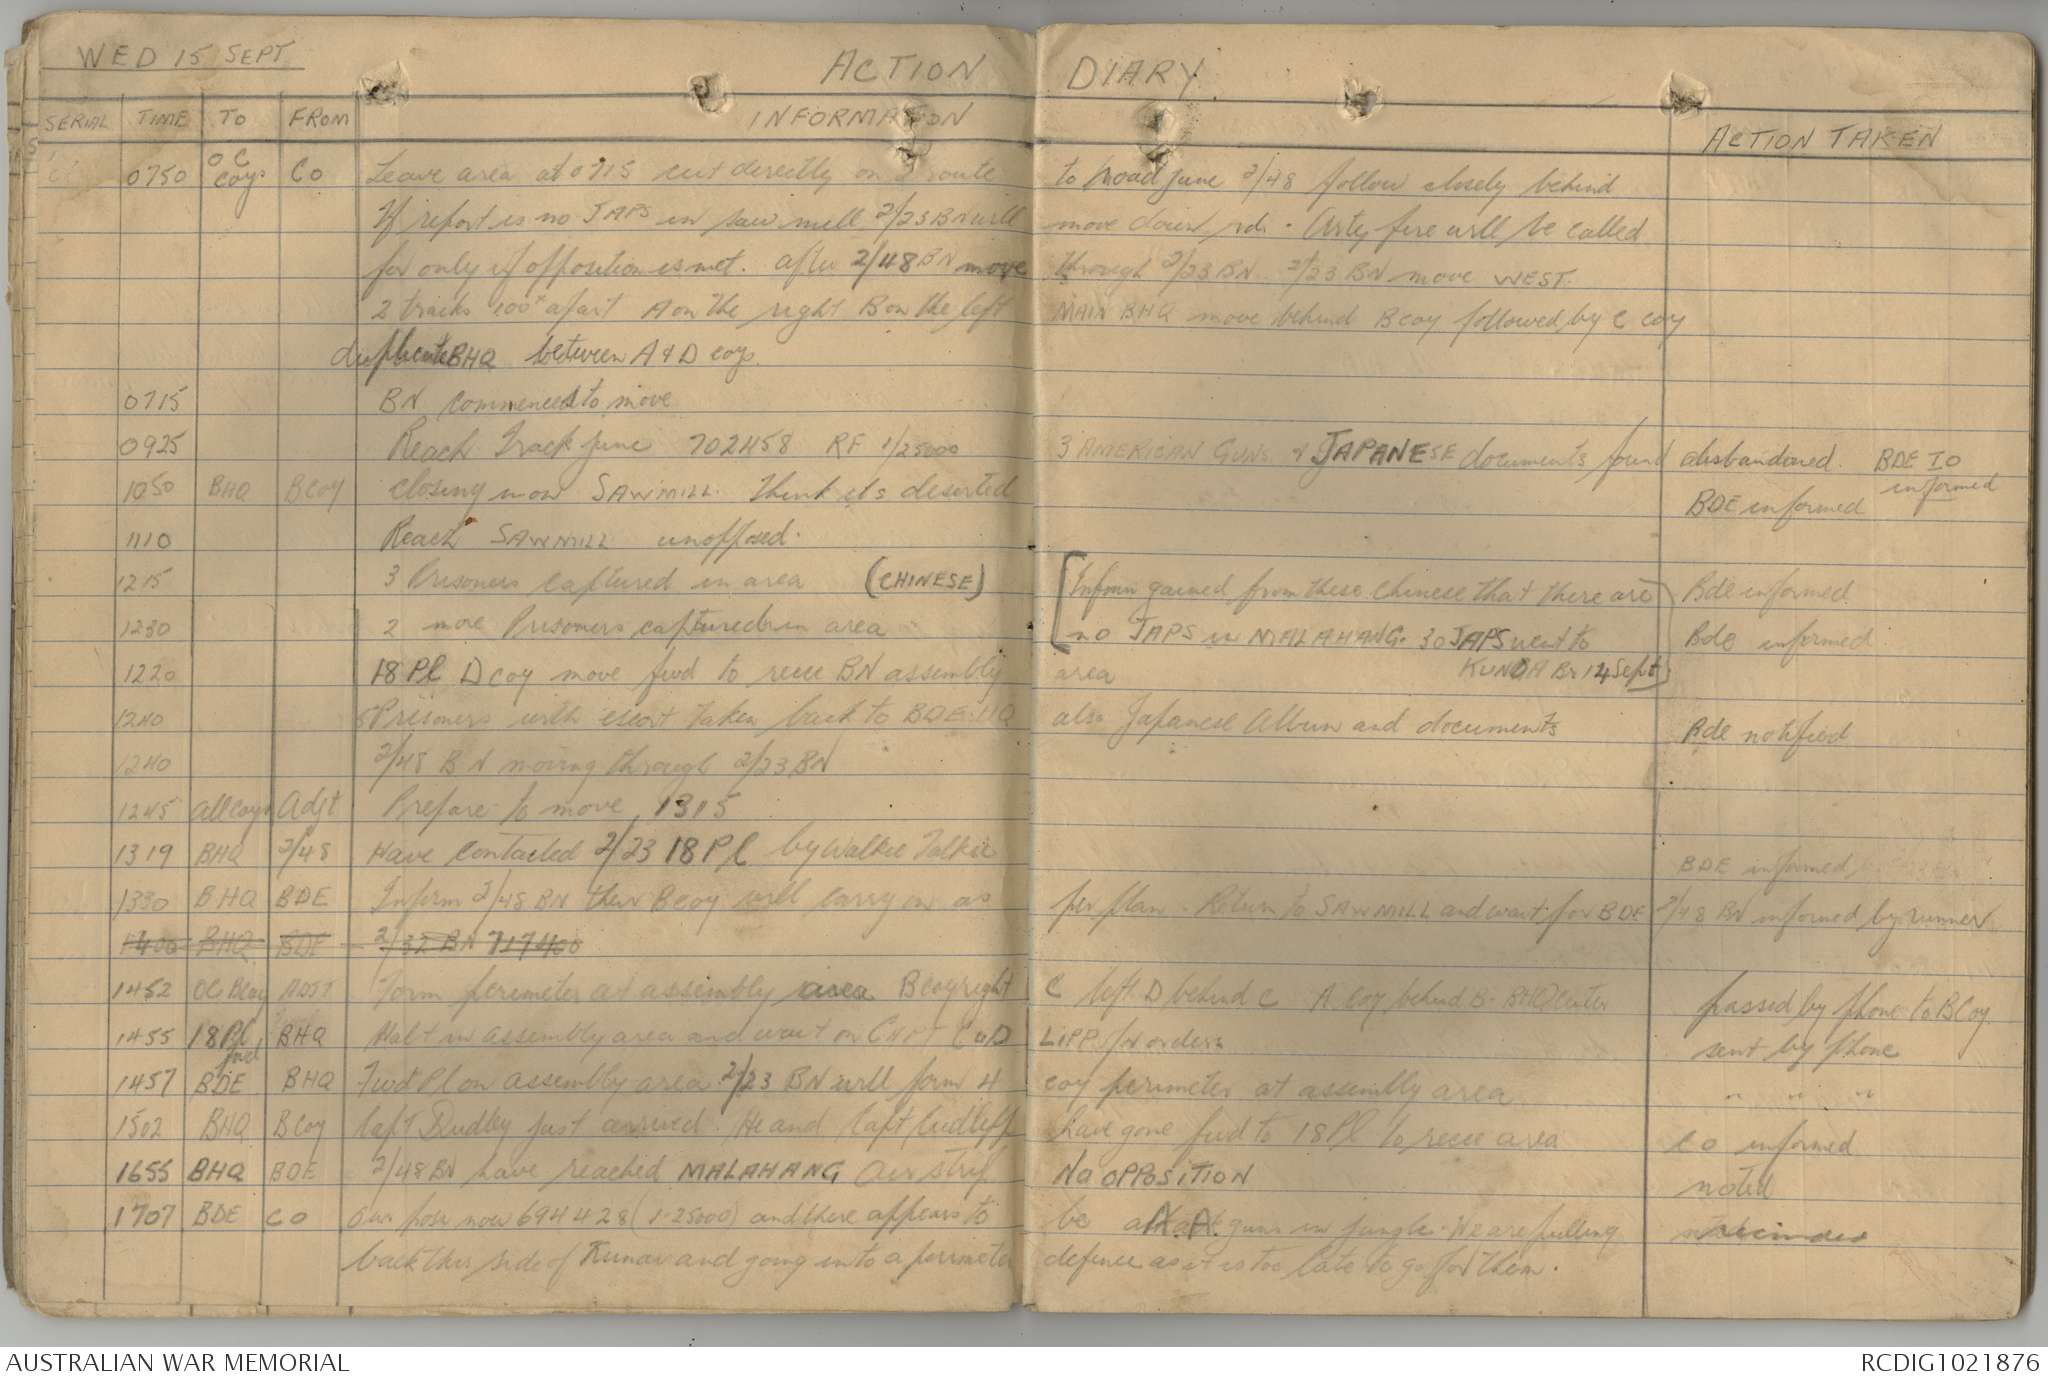 WED 15 SEPT
ACTION DIARY
SERIAL TIME TO FROM INFORMATION ACTION TAKEN
0750 OC coys CO Leave area at 0715 cut directly on route to road junc 2/48 follow closely behind
If report is no JAPS in saw mill 2/23 BN will move down rds. Arty fire will be called
for only if opposition is met. after 2/48 BN move through 2/23 BN. 2/23 BN move WEST.
2 tracks 100x apart A on the right B on the left MAIN BHQ move behind B coy followed by C coy
duplicate BHQ between A & D coys.
0715 BN commenced to move
0925 Reach Track junc 702458 RF 1/25000 3 AMERICAN GUNS & JAPANESE documents found abandoned. BDE IO informed
1050 BHQ B Coy closing now SAWMILL. Think its deserted BDE informed
1110 Reach SAWMILL unopposed.
1215 3 Prisoners captured in area (CHINESE) [Inform gained from these Chinese that there are Bde informed
1230 2 more Prisoners captured in area no JAPS in MALAHANG. 30 JAPS went to KUNDA Br 14 Sept] Bde informed
1220 18 Pl D coy move fwd to recce BN assembly area
1240 5 Prisoners with escort taken back to BDE HQ also Japanese Album and documents Bde notified
1240 2/48 BN moving through 2/23 BN
1245 All coys Adjt Prepare to move 1315
1319 BHQ 2/48 Have contacted 2/23 18 Pl by Walkie Talkie BDE informed
1330 BHQ BDE Inform 2/48 BN their B coy will carry on as per plan. Return to SAWMILL and wait for BDE 2/48 BN informed by runner
1400 BHQ BDE - 2/32 BN 717460
1452 OC B coy ADJT Form perimeter at assembly area B coy right C left D behind C A coy behind B. BHQ center passed by phone to B Coy
1455 18 Pl fwd BHQ Halt in assembly area and wait on CAPT CUD LIPP for orders sent by phone
1457 BDE BHQ Fwd Pl on assembly area. 2/23 BN will form 4 coy perimeter at assembly area " " "
1502 BHQ B Coy Capt Dudley just arrived. He and Capt Cudlipp have gone fwd to 18 Pl to recce area CO informed
1655 BHQ BDE 2/48 BN have reached MALAHANG Air strip NO OPPOSITION noted
1707 BDE CO Our posn now 694428 (1-25000) and there appears to be A.A. guns in jungle. We are pulling
back this side of and going into a perimeter defence as it is too late to go for them.
AUSTRALIAN WAR MEMORIAL RCDIG1021876